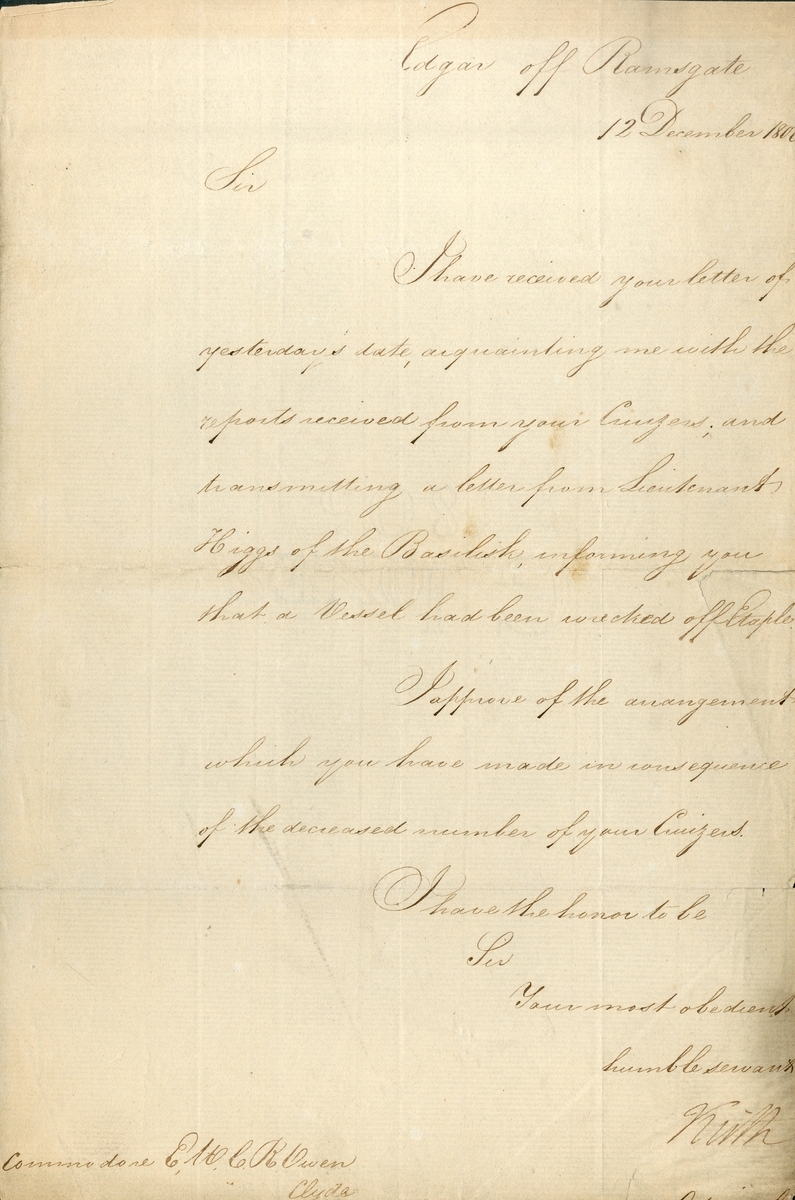 Edgar off Ramsgate
12 December
Sir
I have received your letter of
yesterday's date, acquainting me with the
reports received from your Cruizers; and
transmitting a letter from Lieutenant
Higgs of the Basilisk, informing you
that a Vessel had been wrecked off Etaples.
I approve of the arrangement
which you have made in consequence
of the decreased number of your Cruizers.
I have the honor to be
Sir
Your most obedient
humble servant
Keith
Commodore E, W, C R Owen
Clyde